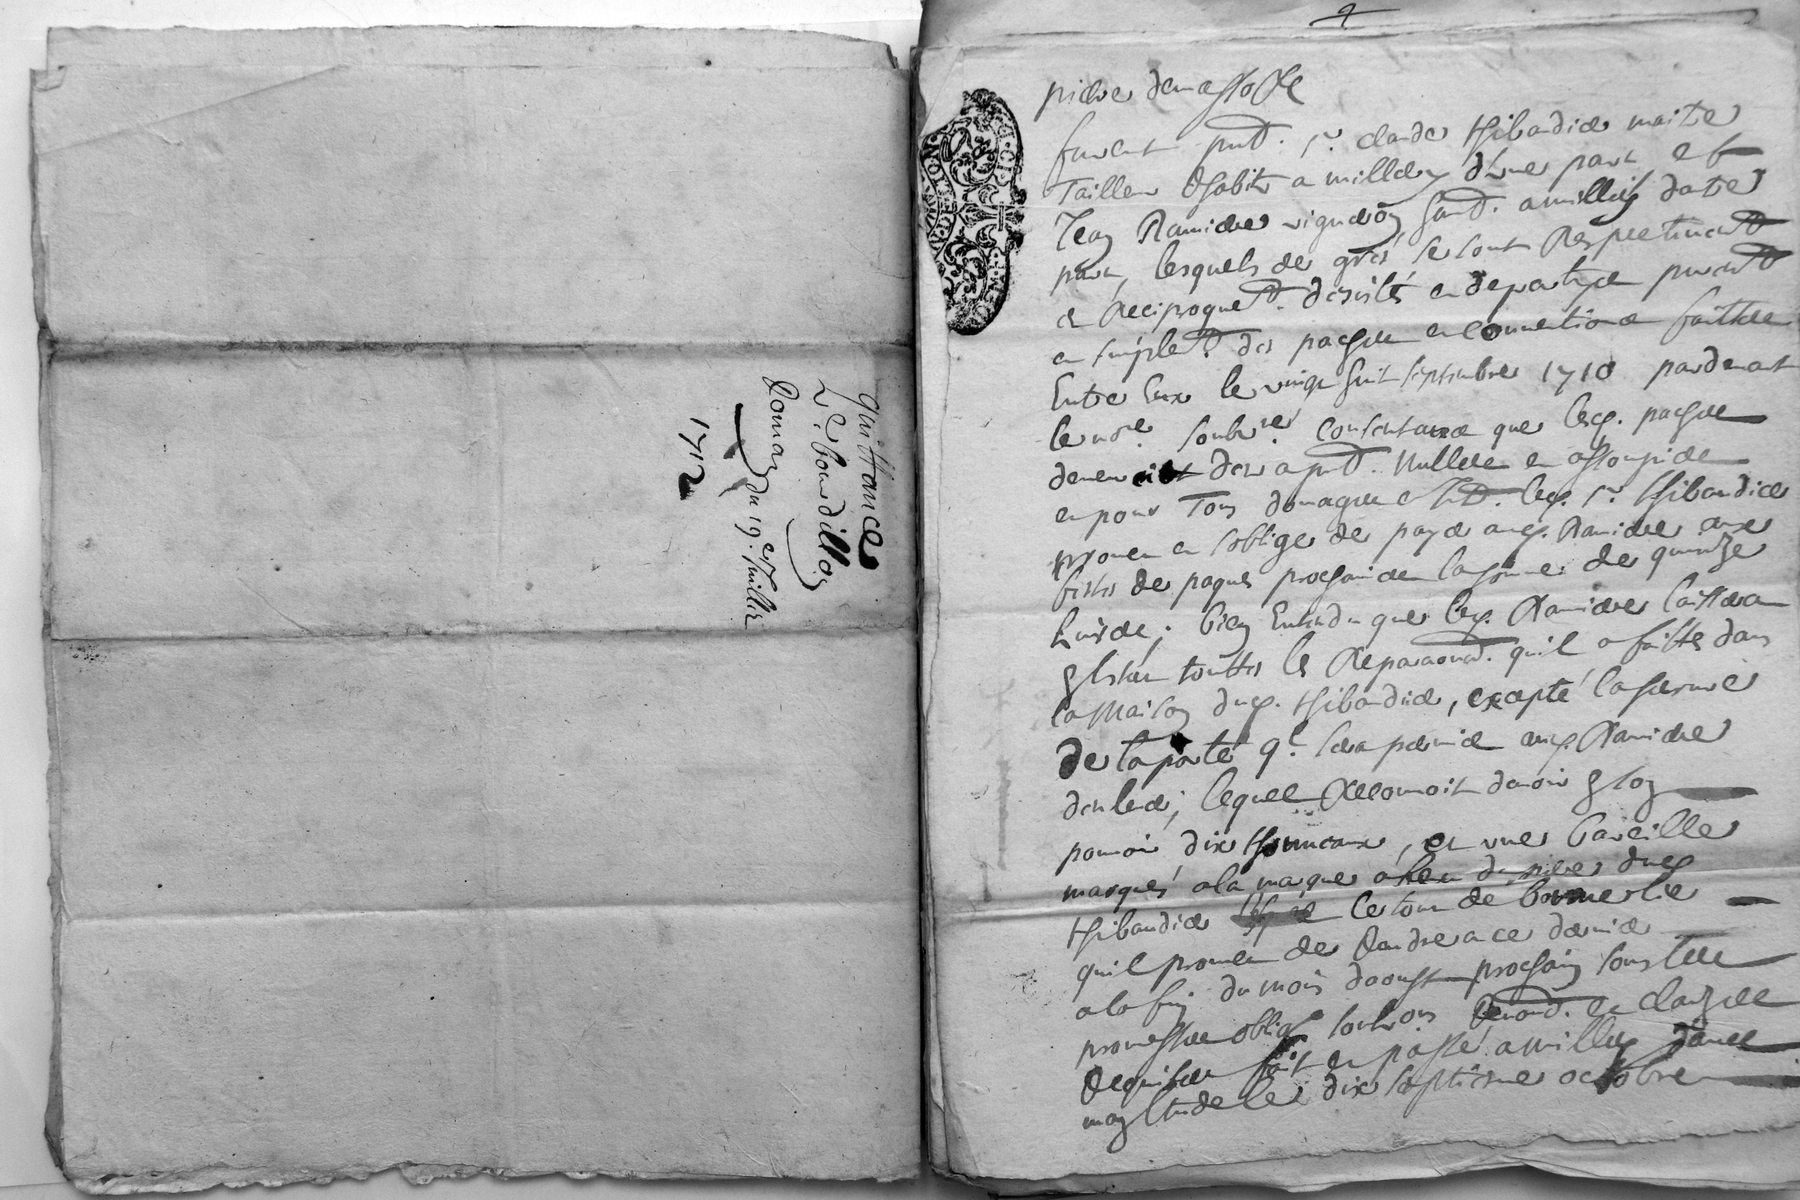 quittance
Le Sr. bourdillon
Domaz du 19e. Juillet
1712
furent pnt. Sr. claude thibaudier maitre
Tailleur habitt a millery d'une part et
Jean Ramier vigneron hant. a millery dautre
part, lesquels de gré se sont Respectivemt
et Reciproquemt. desistés et departys purement
et simplemt des paches et conventions faittes
Entre Eux le vingt huit septembre 1710 pardevant
le nore. soubsné. consentants que lesd. paches
demeurent des a pnt. Nulles et assoupies
et pour Tous domages led. Sr. thibaudier
promet et soblige de payer aud. Ramier aux
festes de paques prochaines la somme de quinze
livres; bien Entendu que led. Ramier laissera
touttes les Reparaons. quil a faittes dans
la Maison dud. thibaudier, excepté la serrure
de la porte q.l sera permis aud. Ramier
denlever; lequel Reconnoit davoir En son
pouvoir dix thonneaux, et une bareille
marqués a la marque dud.
thibaudier
quil promet de Rendre a ce dernier
a la fin du mois daoust prochain sous telles
promesses oblig. soubons Renond. et clauses
Requises fait et passé a millery
le dix septieme octobre